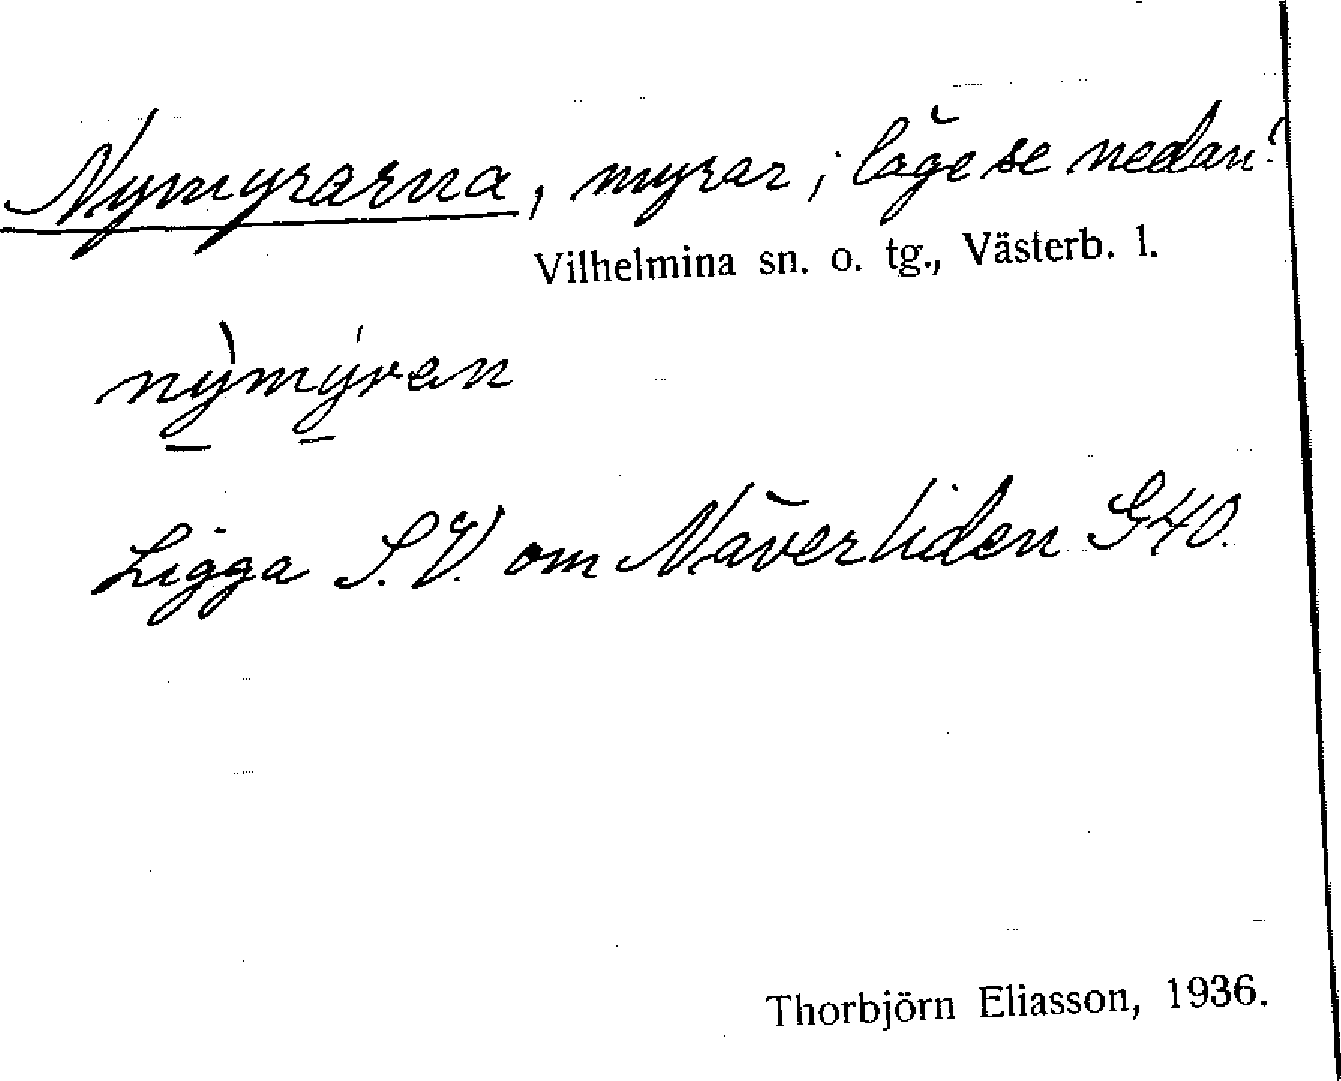 Nymyrarna, myrar; läge se nedan!
Vilhelmina sn. o. tg., Västerb. l.
nỳmýran
Ligga S.V. om Näverliden G40.
Thorbjörn Eliasson, 1936.